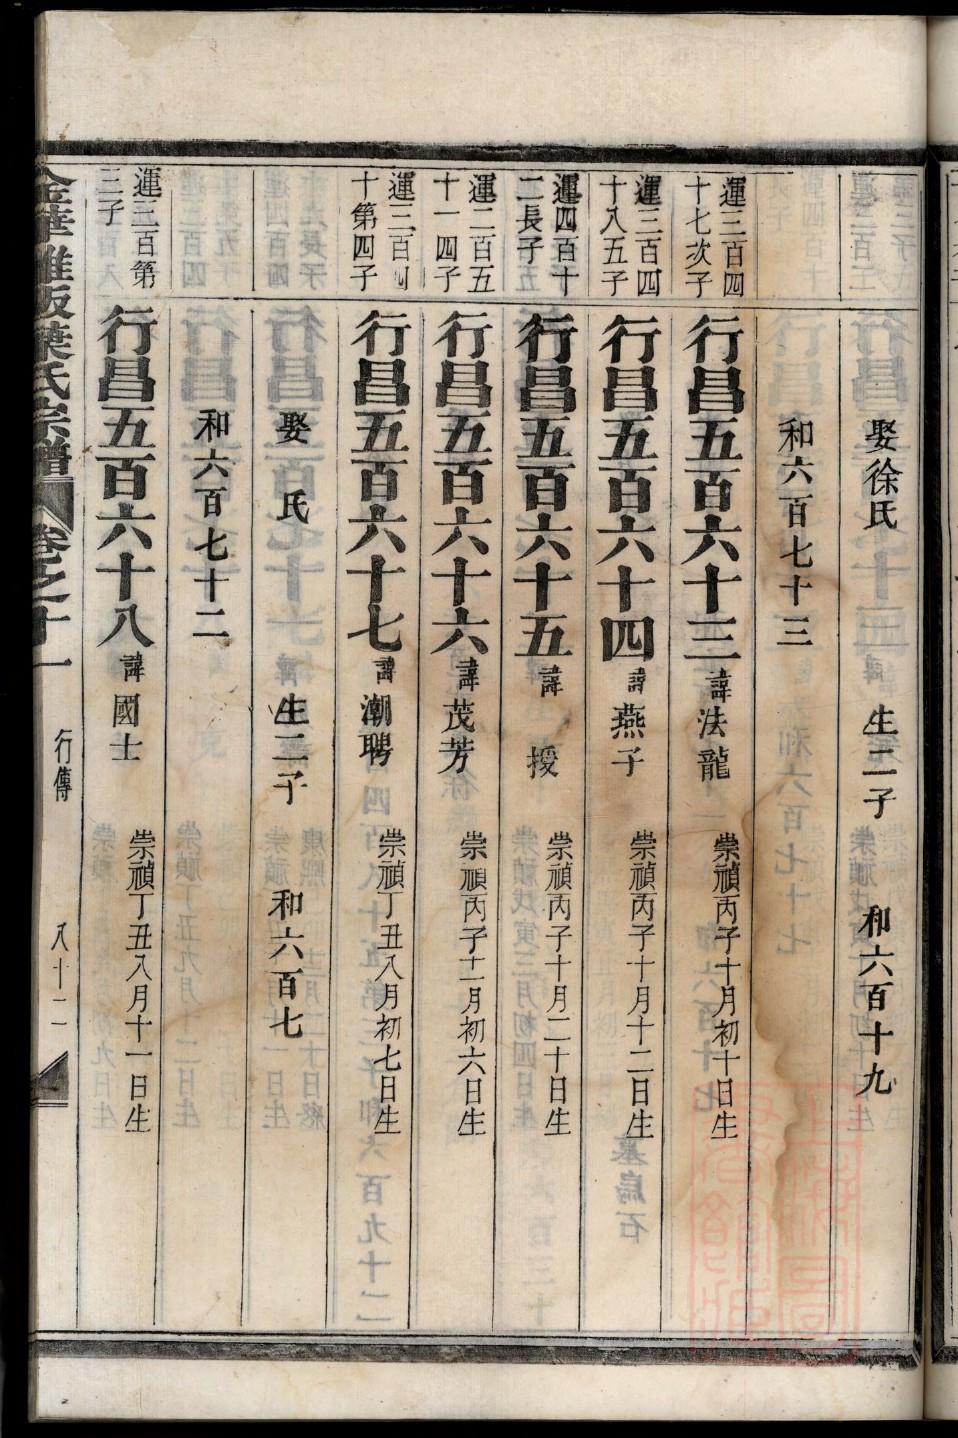 娶徐氏 生二子 和六百十九
和六百七十三
運三百四十七次子 行昌五百六十三 諱法龍 崇禎丙子十月初十日生
運三百四十八五子 行昌五百六十四 諱燕子 崇禎丙子十月十二日生
運四百十二長子 行昌五百六十五 諱 授 崇禎丙子十月二十日生
運二百五十一四子 行昌五百六十六 諱茂芳 崇禎丙子十二月初六日生
運三百 十第四子 行昌五百六十七 諱潮聘 崇禎丁丑八月初七日生
娶 氏 生三子 和六百七
和六百七十二
運三百第三子 行昌五百六十八 諱國士 崇禎丁丑八月十一日生
金華 葉氏宗譜 卷之十一 行傳 八十二